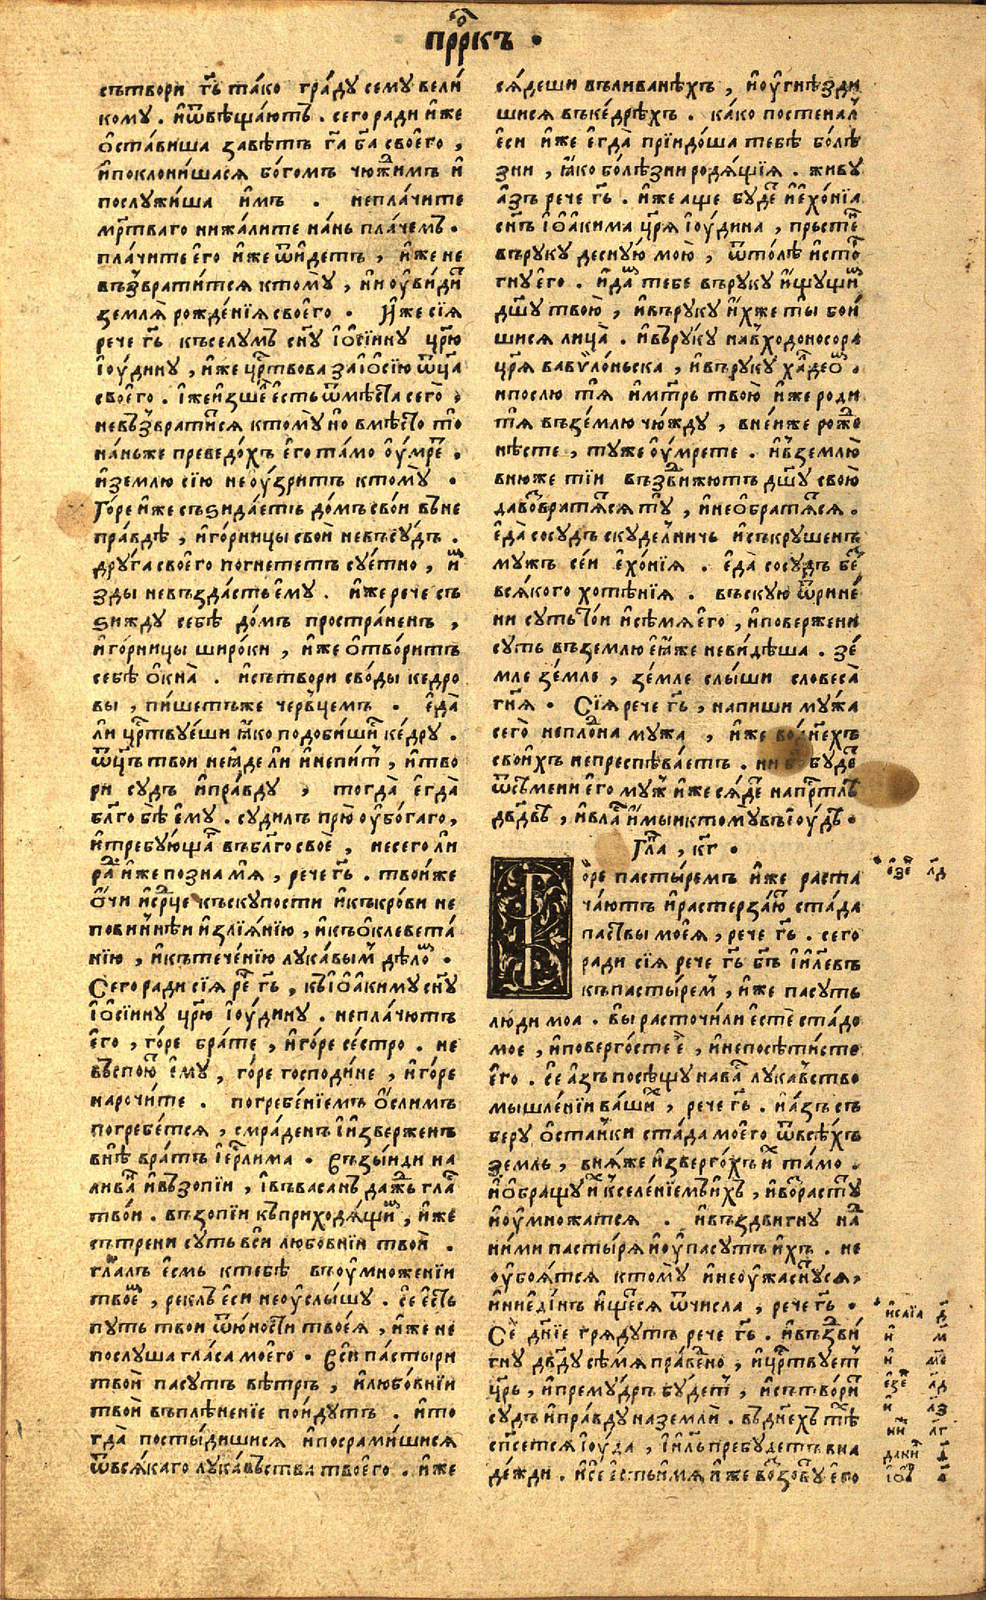 прⷪ҇ркъ .
сътвори гь҃ та́ко гра́ду сему вели́
кому . и҆ѿвѣща́ютъ . сего ради и҆же
ѡ҆ста́виша завѣ́тъ га҃ ба҃ свое҆го ,
и҆поклони́шася бо́гомъ чюжи́мъ и҆
послужи́ша и҆мъ . непла́чите
мр҃тваго нижа́лите на́нь пла́чемъ .
пла́чите е҆го и҆же ѿи́детъ , и҆же не
възврати́тся ктомꙋ , ниоу҆ви́дит
земля̀ рожде́нїя свое҆го . И҆же сїя
рече гь҃ къселумъ сн҃у і҆ѡ҆сїину цр҃ю
і҆оу́дину , и҆же црⷭ҇твова заі҆ѡ҆сїю ѿц҃а
свое҆го . і҆жеи҆зше е҆сть ѿмѣ́ста сего̀ ,
невъзврати́ся ктомꙋ но вмѣ́сто то
на́ньже преведо́хъ е҆го та́мо оу҆́мре .
и҆землю сїю неоу҆́зритъ ктомꙋ .
Го́ре и҆же съзида́етъ до́мъ сво́и въне
пра́вдѣ , и҆го́рницы свои҆ невъсудъ .
друга свое҆го погнететъ суе́тно , и҆м
зды невъзда́стъ е҆му . и҆же рече съ
зижду себѣ̀ до́мъ простра́ненъ ,
и҆го́рницы широ́ки , и҆же ѡ҆тво́ритъ
себѣ̀ ѻ҆кна̀ . и҆сътвори сво́ды кедро
вы , пи́шетъже черъвцемъ . е҆да̀
ли црⷭ҇твуе́ши ꙗ҆ко подо́бишися ке́дру .
ѿц҃ъ твои неꙗ҆де ли и҆непит , и҆тво
ри судъ и҆пра́вду , тогда̀ е҆гда̀
бл҃го бѣ̀ е҆му . суди́лъ прю̀ оу҆бо́гаго ,
и҆тре́бующа въбл҃го своѐ , несего ли
ра́ди и҆же позна мя̀ , рече гь҃ . твои́же
ѻ҆́чи и҆срⷣце къскупости и҆къкро́ви не
пови́ннѣи и҆злїя́нїю , и҆къѡ҆клевета́
нїю , и҆къ тече́нїю лука́вым дѣло .
Сего ради сїя ре гь҃ , къі҆ѡ҆акиму сн҃у
і҆ѡ҆сїину цр҃ю і҆оу́дину . непла́чютъ
е҆го , го́ре бра́те , и҆го́ре се́стро . не
въспою е҆му , го́ре господи́не , и҆го́ре
нарочи́те . погребе́нїемъ ѻ҆слимъ
погребе́тся , смра́денъ и҆и҆зверженъ
внѣ̀ вра́тъ і҆ерⷭ҇лима . Възыиди на
лива и҆възопїи , і҆въвасанъ да́жь гла
тво́и . възопїи къприходя́щи , и҆же
сътрени суть вси любовнїи твои҆ .
гл҃алъ е҆смь ктебѣ̀ въоу҆множенїи
твое , реклъ е҆си неоу҆слы́шу . се е҆сть
путь твои ѿю́ности твое́я , и҆же не
послуша гла́са мое҆го . Вси па́стыри
твои҆ пасутъ вѣтръ , и҆любо́внїи
твои҆ въплѣне́нїе поидутъ . и҆то
гда̀ постыди́шися и҆посрами́шися
ѿвся́каго лука́въства твое҆го . и҆же
ся́деши въливанѣхъ , и҆оу҆гнѣзди
шися въке́дрѣхъ . ка́ко постенал
е҆си и҆же е҆гда̀ прїидо́ша тебѣ болѣ
зни , ꙗ҆ко болѣ́зни родя́щїя . живу
а҆зъ рече гь҃ . и҆же а҆ще буде и҆е҆хо́нїа
сн҃ъ і҆ѡ҆акима цр҃я і҆оу́дина , пръсте
въруку десную мою̀ , ѿто́лѣ и҆сто
гну е҆го . и҆да́м тебе въруку и҆щущи
дш҃у твою̀ , и҆въруку и҆́хже ты бои
шися лица̀ . и҆въруку навъходоносора
цр҃я вавѷло́ньска , и҆въруку халдео .
и҆послю тя̀ и҆мт҃рь твою̀ и҆же роди
тя̀ въземлю чю́жду , вне́иже роже
нѣсте , ту́же оу҆мрете . и҆въземлю
вню́же тїи възви́жютъ дш҃у свою̀
давъзвратятся ту̀ , и҆невозвратятся .
е҆да̀ сосудъ скуде́лничь и҆съкрушенъ
мужъ се́и е҆хо́нїя . е҆да̀ сосудъ бе
вся́кого хотѣ́нїя . въскую ѿрине́
ни суть то́и и҆сѣмя е҆го , и҆повержени
суть въземлю е҆ꙗ҆же невѣдѣша . зе́
мле земле , земле слы́ши словеса̀
гн҃я . Сїя рече гь҃ , напиши му́жа
сего̀ непло́дна мужа , и҆же во днехъ
свои҆хъ непреспѣва́етъ . ни буде
ѿсѣмени е҆го муж и҆же ся́де на прⷭ҇тлѣ
дв҃двѣ , и҆вла и҆мыи ктомꙋ въі҆оу́дѣ .
Гла , кг҃ .
оре па́стыремъ и҆же раста
ча́ютъ и҆растерза́ю ста́да
па́ствы мое́я , рече гь҃ . сего
ради сїя рече гь҃ бг҃ъ і҆и҃левъ
къпа́стырем , и҆же пасуть
лю́ди моа . вы расточи́ли е҆стѐ ста́до
мое , и҆поверго́сте е҆̀ , и҆непосѣти́сте
е҆го . се а҆зъ посѣщу нава лука́вство
мышле́нїи ва́ши , рече гь҃ . и҆а҆зъ съ
беру ѡ҆ста́нки ста́да мое҆го ѿвсѣ́хъ
земль , вня́же и҆зверго́хъ и҆ та́мо .
и҆ѡ҆бращу и҆ кселе́нїемъ и҆хъ , и҆возрасту
и҆оу҆мно́жатся . и҆въздвигну на
ни́ми па́стыря и҆оу҆пасутъ и҆хъ . не
оу҆боя́тся ктомꙋ и҆неоу҆жаснуся ,
и҆ни е҆ди́нъ и҆щеся ѿчисла , рече гь҃ .
Сѐ дн҃їе грядутъ рече гь҃ . и҆въздви́
гну дв҃ду сѣ́мя пра́ведно , и҆црⷭ҇твует
цр҃ь , и҆прему́дръ бу́дет , и҆сътво́ри
су́дъ и҆пра́вду наземлѝ . въдне́хъ тѣ
сп҃сется і҆оу́да , і҆и҃ль пребудетъ вна
де́жди . и҆се е҆стьи́мя и҆же возову́ е҆го
е҆зе л҃д
и҆саїа д҃
и҆ м҃
и҆ м҃е
е҆зе л҃д
и҆ л҃з
л҃г
дани
і҆ѡ҆